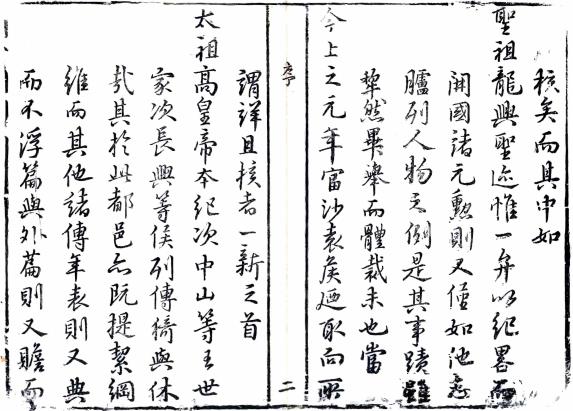 核矣而其中如
聖祖龍興聖迹惟一弁以紀畧而
開國諸元勲則又僅如他志
臚列人物之例是其事蹟雖
犂然畢舉而體裁未也當
今上之元年富沙袁侯廼取向所
序
二
謂詳且核者一新之首
太祖髙皇帝本紀次中山等王世
家次長興等侯列傳猗與休
㢤其於此都邑亦既提挈綱
維而其他諸傳年表則又典
而不浮篇與外篇則又贍而